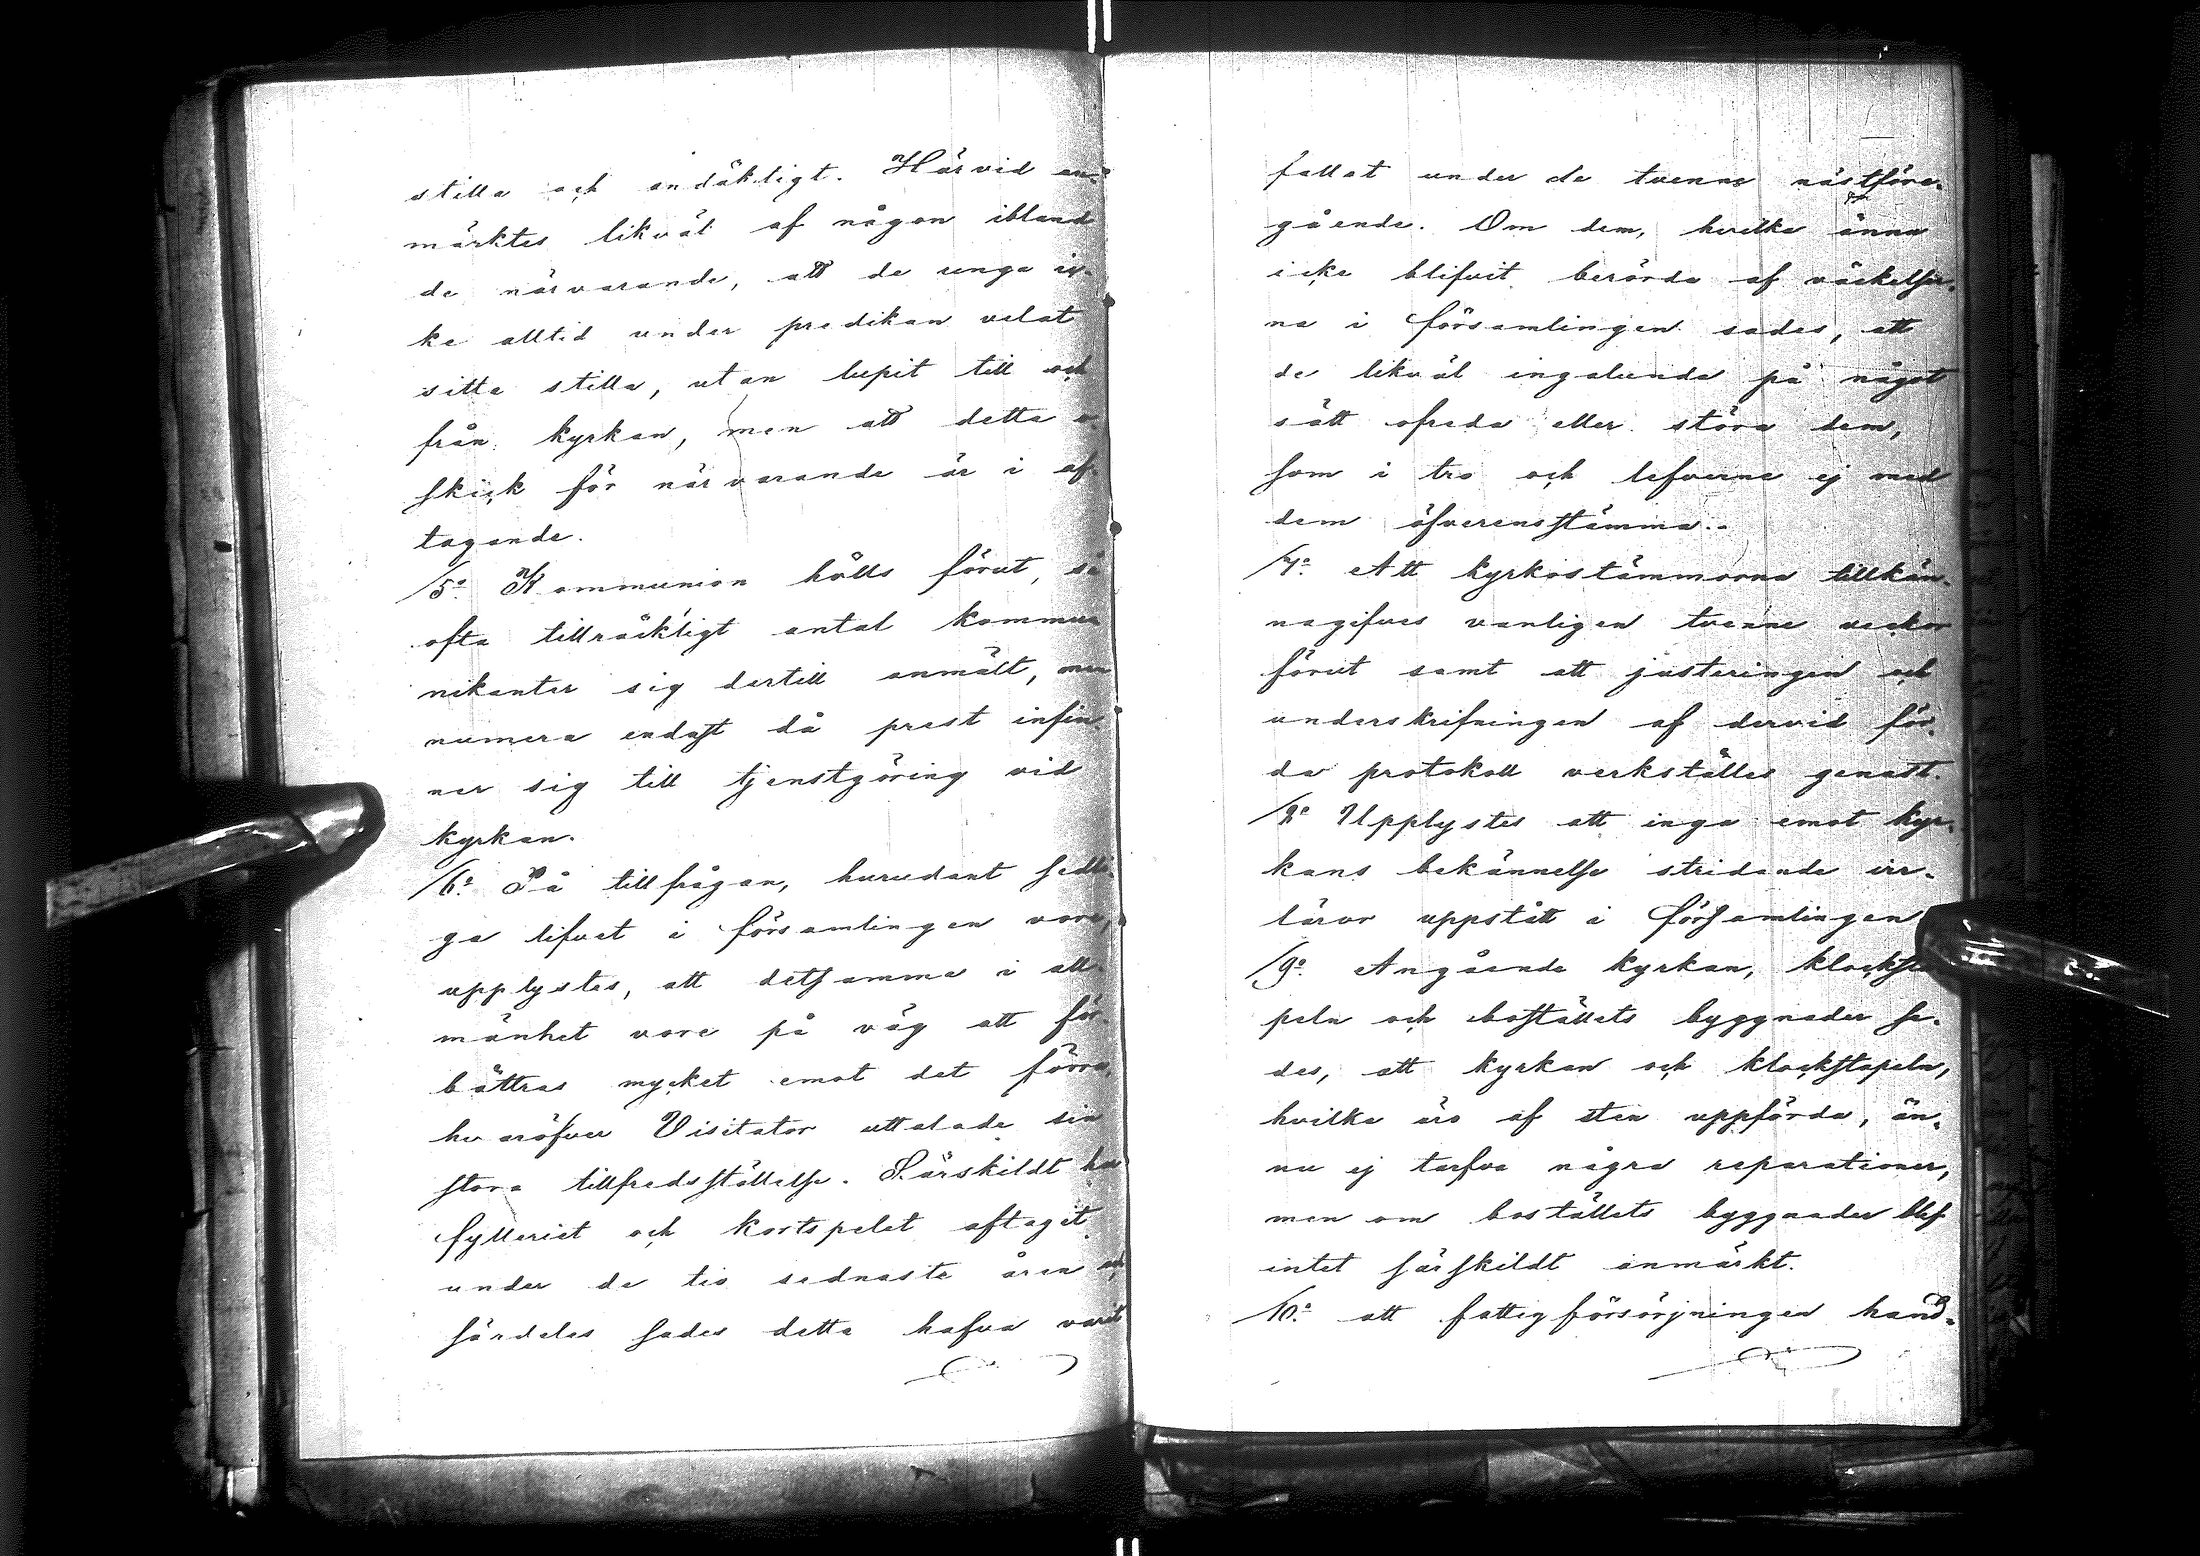 stilla och andäktigt. Härvid an-
märktes likväl af någon ibland
de närvarande, att de unga ic-
ke alltid under predikan velat
sitta stilla, utan lupit till och
från kyrkan, men att detta o-
skick för närvarande är i af-
tagande.
/5:o Kommunion hålls förut, så
ofta tillräckligt antal kommu-
nikanter sig dertill anmält, men
numera endast då prest infin-
ner sig till tjenstgöring vid
kyrkan.
/6:o På tillfrågan, hurudant sedli-
ga lifvet i församlingen vore,
upplystes, att detsamma i all-
mänhet vore på väg att för-
bättras mycket emot det förra,
hvaröfver Visitator uttalade sin
stora tillfredsställelse. Särskildt ha
fylleriet och kortspelet aftagit
under de tio sednaste åren och
särdeles sades detta hafva varit
fallat under de tvenne nästföre-
gående. Om dem, hvilka änna
icke blifvit berörda af väckelser-
na i församlingen sades, att
de likväl ingalunda på något
sätt ofreda eller störa dem,
som i tro och lefverne ej med
dem öfverensstämma.-
/7:o Att kyrkostämmorna tillkän-
nagifves vanligen tvenne veckor
förut samt att justeringen och
underskrifningen af dervid för-
da protokoll verkställes genast.
/8:o Upplystes att inga emot kyr-
kans bekännelse stridande irr-
läror uppstått i församlingen
/9:o Angående kyrkan, klocksta
peln och boställets byggnader sa-
des, att kyrkan och klockstapeln,
hvilka äro af sten uppförda, än-
nu ej tarfva några reparationer,
men om boställets byggnader blef
intet särskildt anmärkt.
/10:o att fattigförsörjningen hand-